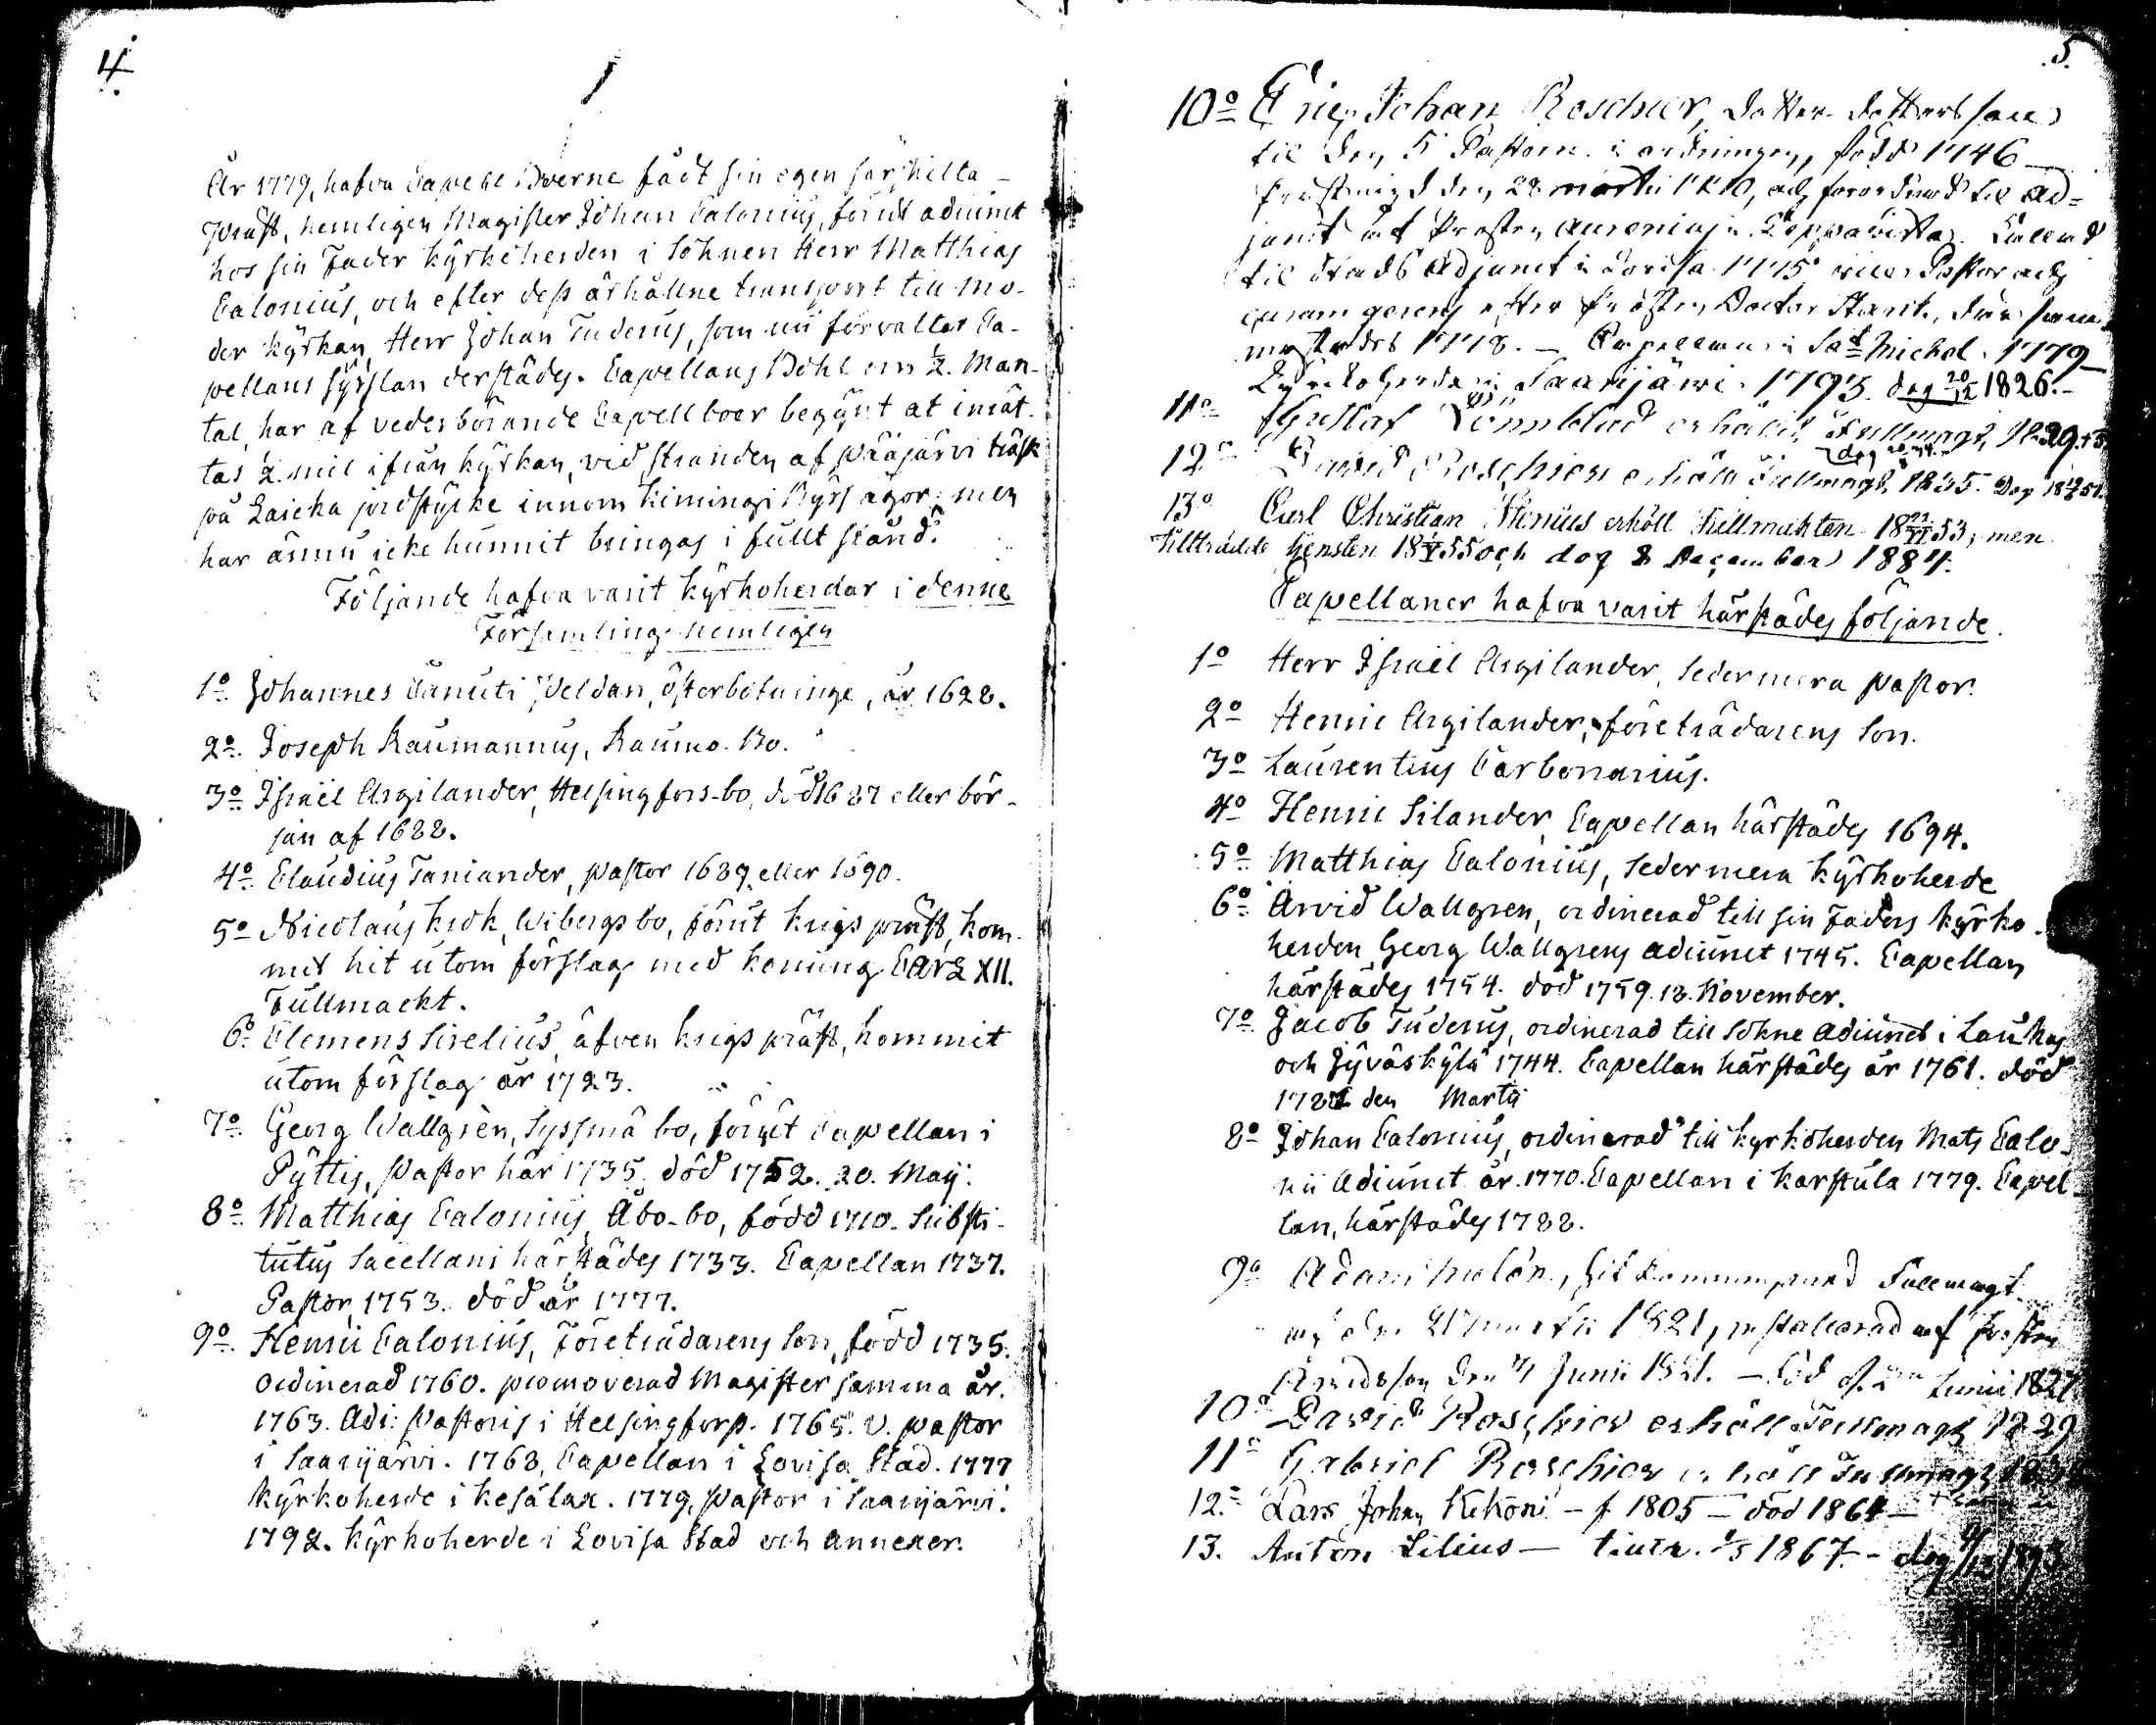 4
År 1779, hafva Capell Boerne fådt sin egen särskilta
Präst, nemligen Magister Johan Calonius, förut adiunct
hos sin Fader kyrkoherden i Soknen Herr Matthias
Calonius, och efter dess ärhållne transport till Mo-
der kyrkan, Herr Johan Tuderus, som nu förvaltar Ca-
pellans syslan derstädes. Capellans Bohl om ½. Man-
tal, har af vederbörande Capellboer begynt at inrät-
tas ½. mil ifrån kyrkan, vid stranden af Pääjärvi träsk
på Laicka jordstycke innom Kimingi Byss ägor: men
har ännu icke hunnit bringas i fullt stånd.
Följande hafva varit kyrkoherdar i denne
Församling nemligen
1o Johannes Canuti Peldan, österbotninge, år 1628.
2o. Joseph Raumannus, Raumo-Bo.
3o Israël Argilander, Helsingfors-bo, död 1687 eller bör-
jan af 1688.
4o. Claudius Taniander, pastor 1689 eller 1690.
5o Nicolaus Krok, Wiborgs bo, förut krigs präst, kom-
mit hit utom förslag med konung Carl XII.
Fullmackt.
6o. Clemens Sirelius, äfven krigs präst, kommit
utom förslag år 1723.
7o. Georg Wallgrèn, Syssmä bo, förut Capellan i
Pyttis, Pastor här 1735. död 1752. 20. Maij.
8o. Matthias Calonius, Åbo-bo, född 1710. Substi-
tutus Sacellani härstädes 1733. Capellan 1737.
Pastor, 1753. död år 1777.
9o. Henric Calonius, Företrädarens Son, född 1735.
ordinerad 1760. promoverad Magister samma år.
1763. Adj: Pastoris i Helsingfors. 1765. V. pastor
i Saarijärvi. 1768, Capellan i Lovisa Stad. 1777
kyrkoherde i Kesälax. 1779, Pastor i Saarijärvi.
1792. kyrkoherde i Lovisa Stad och annexer.
5.
10o Eric Johan Roschier, Dotter-Dotters son
til den 5 Pastorn i ordningen, född 1746
prästvigd den 28 martii 1770, och förordnad til ad-
junct åt Prosten Aurenius i Leppävirta. Kallad
til Stads Adjunct i Lovisa 1775 vice Pastor och
curam gerens efter Prosten Doctor Starck, där sam-
mastädes 1778. — Capellan i Sat Michel 1779
Kyrkoherde i Saarijärvi 1793. dog 20/12 1826.
11o Gustaf Lönnblad erhållit Fullmagt 1829.
12o David Roschier erhöll Fullmagt 1835. Dog
13o Carl Christian Stenius erhöll Fullmakten 18 53, men
tillträdde tjensten 18 55 och dog 8 December 1884.
Capellaner hafva varit härstädes följande.
1o Herr Israël Argilander, Sedermera pastor.
2o Henric Argilander, företrädarens Son.
3o Laurentius Carbonarius.
4o Henric Silander, Capellan härstädes 1694.
5o Matthias Calonius, Sedermera kyrkoherde
6o. Arvid Wallgren, ordinerad till sin Faders kyrko-
herden Georg Wallgrens adiunct 1745. Capellan
härstädes 1754. död 1759. 18. November.
7o. Jacob Tuderus, ordinerad till Sokne adiunct i Laukas
och Jyväskylä 1744. Capellan härstädes år 1761. död
den Martii
8o Johan Calonius, ordinerad till kyrkoherden Mats Calo-
nii Adiunct år 1770. Capellan i Karstula 1779. Capel-
lan, härstädes 1788.
9o Adam, hit kommen med Fullmagt
den martii 1821, installerad af Prosten
Arvidsson den Junii 1821. — död Junii 1827
10o David Roschier erhöll Fullmagt 1829
11o Gabriel Roschier erhöll Fullmagt
12. Lars Johan Kekoni - f 1805 — död 1864 —
13. Anton Lilius — tilltr. 1/5 1867 — dog